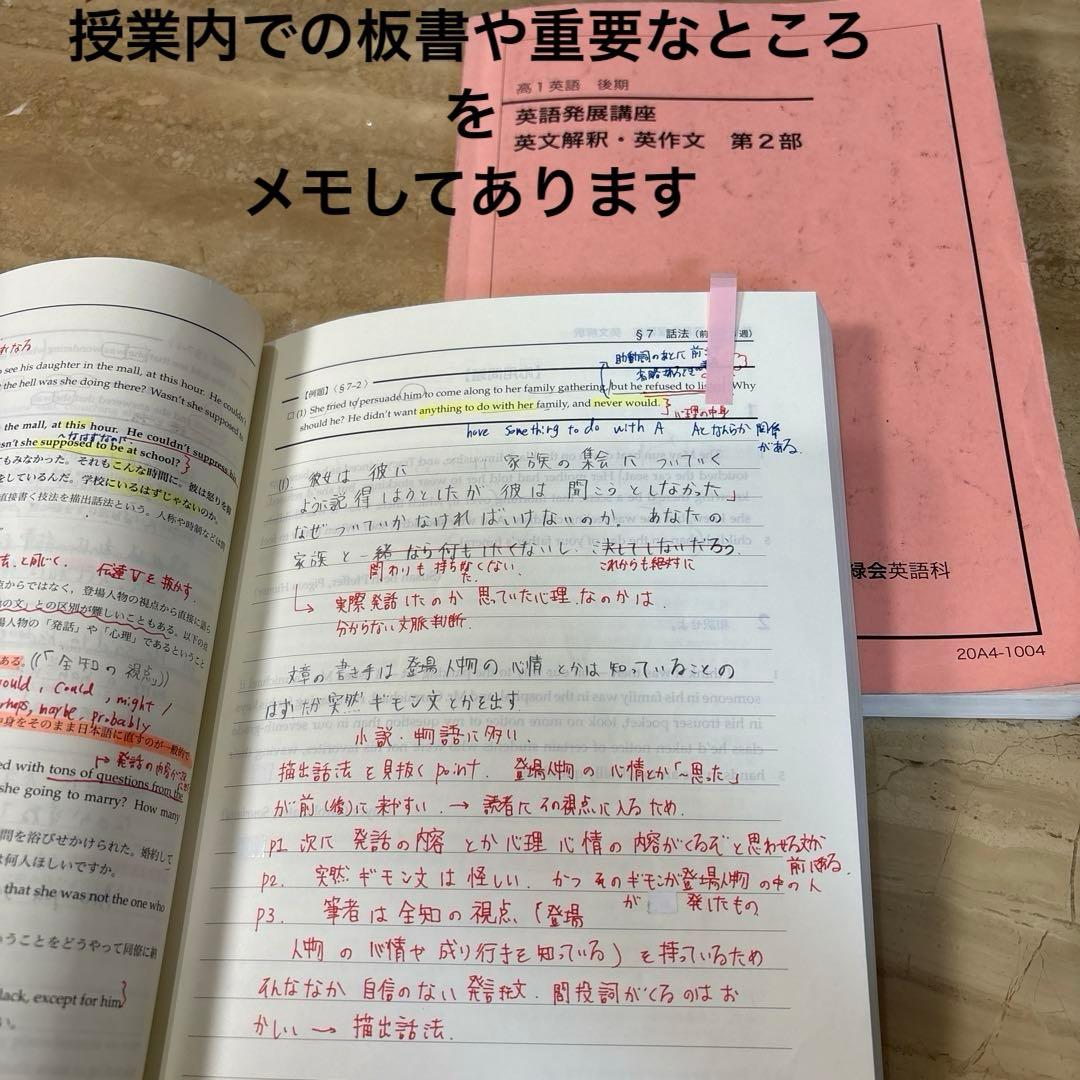 授業内での板書や重要なところ
を
メモしてあります
高1英語 後期
英語発展講座
英文解釈・英作文 第2部
緑会英語科
20A4-1004
see his daughter in the mall, at this hour. He couldn't
the hell was she doing there? Wasn't she supposed to
the mall, at this hour. He couldn't suppress his
はずなのに
she supposed to be at school?
てもみなかった。それもこんな時間に。彼は怒りを
をしているんだ。学校にいるはずじゃないのか。
直接書く技法を描出話法という。人称や時制などは間
と同じく 伝達Vを抜かす.
点からではなく，登場人物の視点から直接に語ら
の文」との区別が難しいこともある。以下の点
場人物の「発話」や「心理」であるということ
ある。((「全知の視点」))
would, could, might /
perhaps, maybe, probably
中身をそのまま日本語に直すのが一般的で
→発話の内容が
ed with tons of questions from the
she going to marry? How many
問を浴びせかけられた。婚約して
は何人ほしいですか。
that she was not the one who
いうことをどうやって同僚に納
lack, except for him
§7 話法（前 週）
助動詞のあとに前
省略
【例題】〈§7-2〉
□(1) She tried to persuade him to come along to her family gathering, but he refused to Why
should he? He didn't want anything to do with her family, and never would.
心理の中身
have something to do with A Aとなんらか関係
がある.
(1) 彼女は彼に 家族の集会についていく
ように説得しようとしたが彼は聞こうとしなかった」
なぜついていかなければいけないのか. あなたの
家族と一緒なら何もしたくないし. 決してしないだろう.
関わりも持ちたくない これからも絶対に
た.
→ 実際発話したのか思っていた心理なのかは.
分からない文脈判断.
文章の書き手は登場人物の心情とかは知っていることの
はずだが突然ギモン文とかを出す.
小説・物語に多い.
描出話法を見抜くpoint. 登場人物の心情とか「〜思った」
が前(後)に来やすい → 読者にその視点に入るため.
p1. 次に発話の内容とか心理心情の内容がくるぞと思わせる文が
前にある.
p2. 突然ギモン文は怪しい. かつそのギモンが登場人物の中の人
が 発したもの
p3. 筆者は全知の視点（登場
人物の心情や成り行きを知っている）を持っているため
そんななか自信のない発言文. 間投詞がくるのはお
かしい → 描出話法.